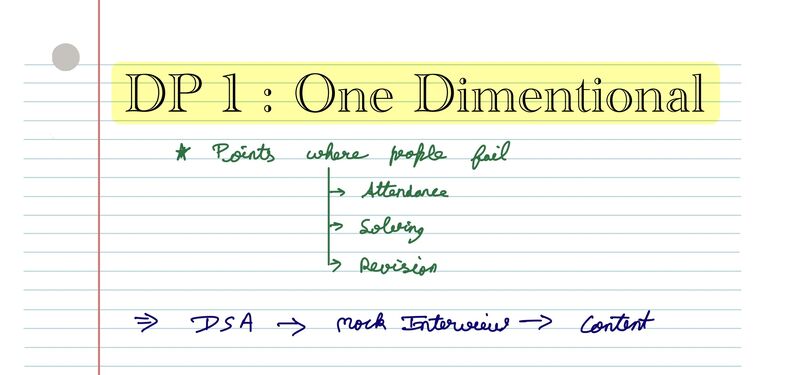 DP 1 : One Dimentional
★ Points where people fail
→ Attendance
→ Solving
→ Revision
⇒ DSA → Mock Interview → Content